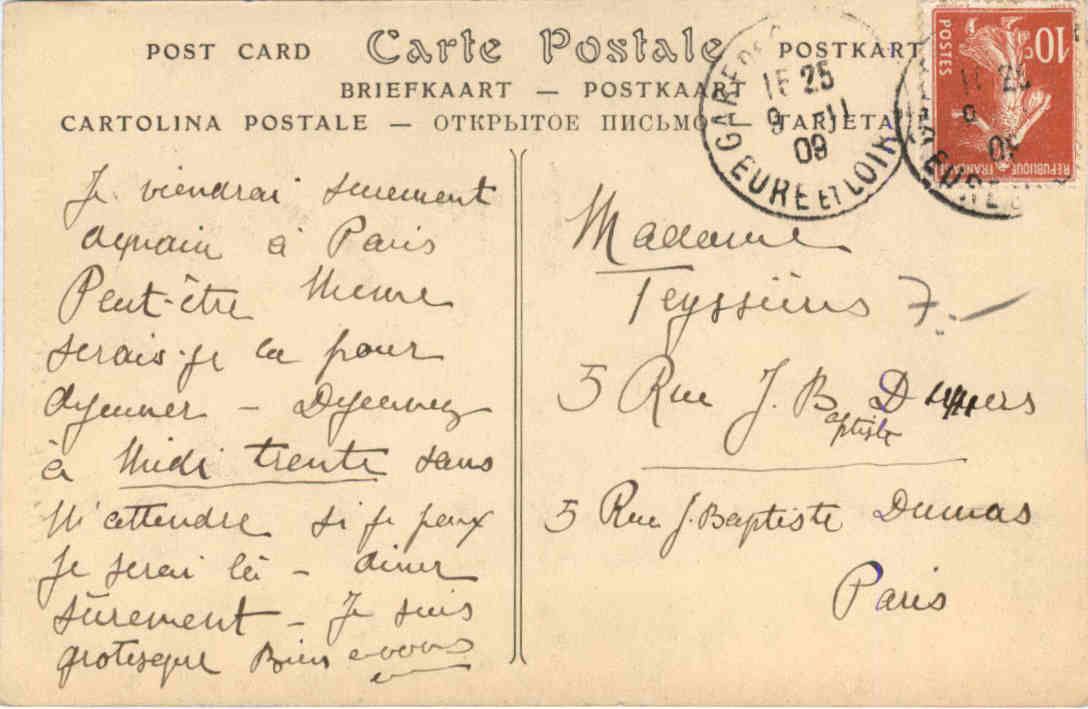 POST CARD Carte Postale POSTKART
BRIEFKAART — POSTKAART
CARTOLINA POSTALE — ОТКРЫТОЕ ПИСЬМО — TARJETA
EURE ET LOIR
15 25
9 -11
09
10c
POSTES
REPUBLIQUE FRANÇAISE
Je viendrai surement
demain à Paris
Peut-être même
serais-je là pour
dejeuner — Dejeunez
à Midi trente sans
m'attendre si je peux
Je serai là — diner
sûrement — Je suis
grotesque Bien à vous
Madame
5 Rue J. Baptiste
5 Rue J. Baptiste Dumas
Paris